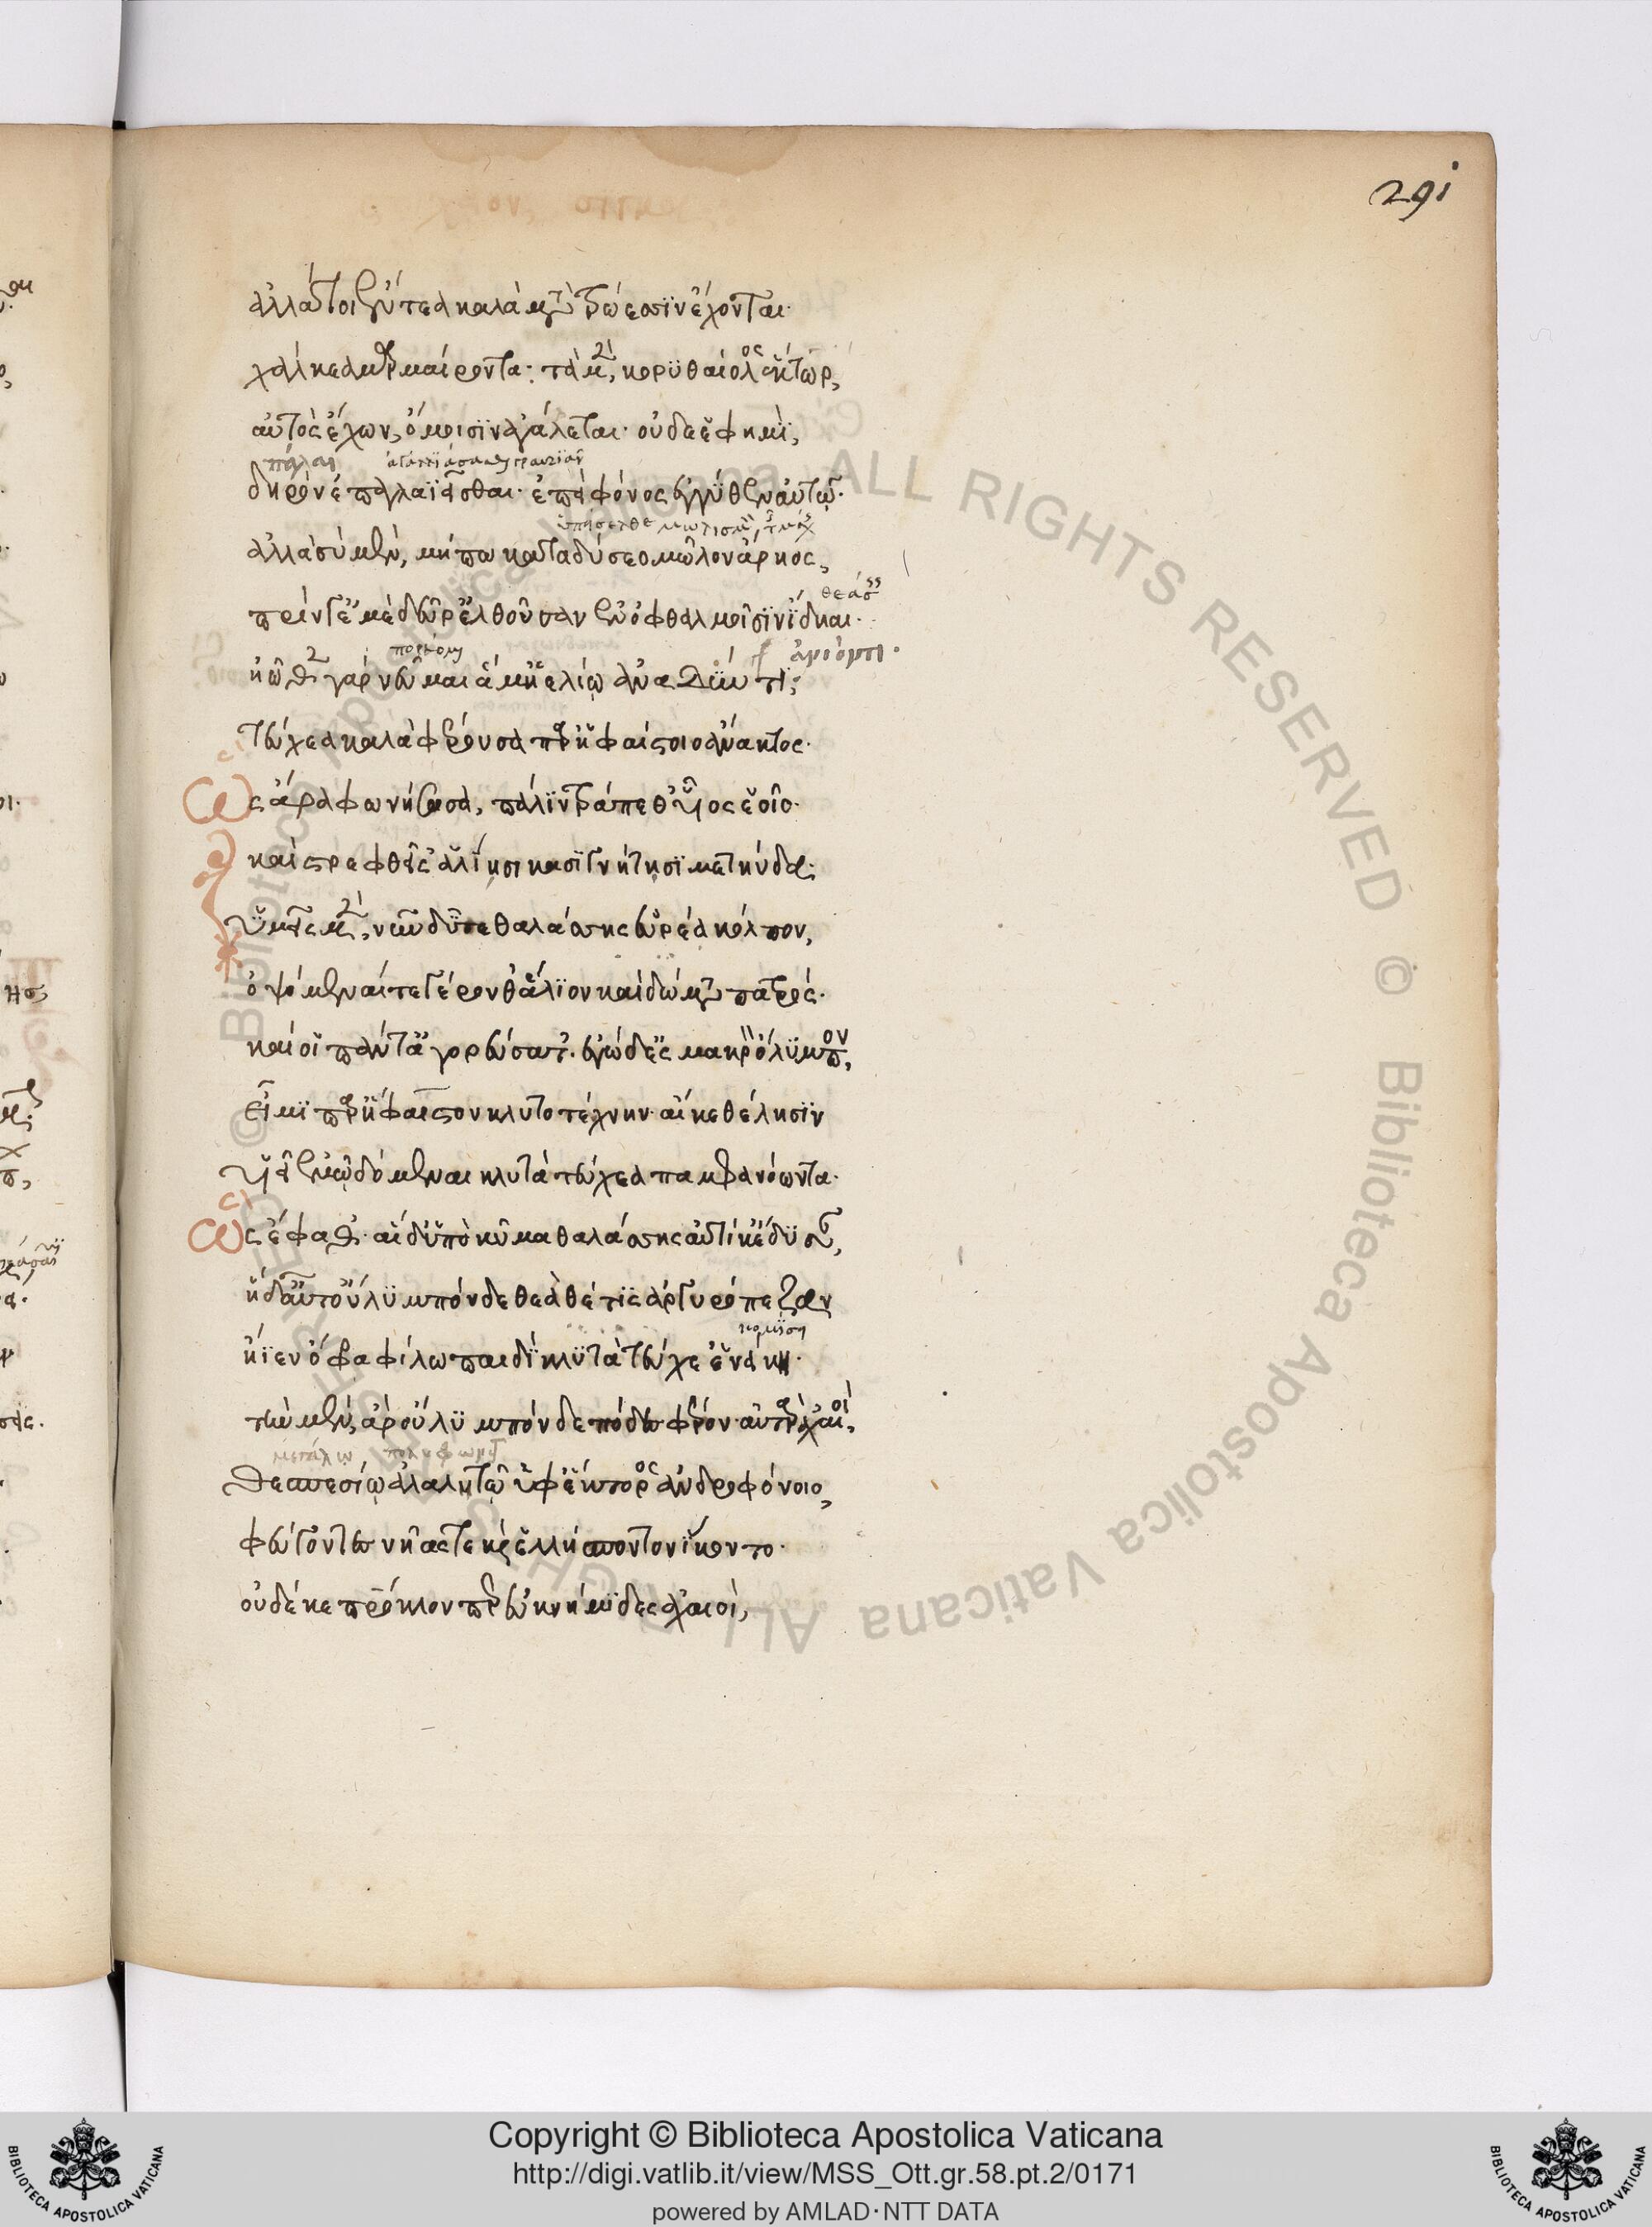 291
ἀλλά τοι ἔντεα καλὰ μετὰ τρώεσσιν ἔχονται·
χάλκεα μαρμαίροντα· τὰ μὲν, κορυθαίολος ἕκτωρ,
αὐτὸς ἔχων, ὤμοισιν ἀγάλλεται· οὐδέ ἕ φημὶ,
πάλαι
δηρὸν ἐπαγλαϊεῖσθαι· ἐπεὶ φόνος ἐγγύθεν αὐτῷ·
ἀλλὰ σὺ μὲν, μήπω καταδύσεο μῶλον ἄρηος,
πρίν γ' ἐμὲ δεῦρ' ἐλθοῦσαν ἐν ὀφθαλμοῖσιν ἴδηαι·
ἠῶθεν γὰρ νεῦμαι ἅμ' ἠελίῳ ἀνιόντι·
τεύχεα καλὰ φέρουσα παρ' ἡφαίστοιο ἄνακτος·
ὣς ἄρα φωνήσασα, πάλιν τράπεθ' υἷος ἑοῖο·
καὶ στρεφθεῖσ' ἁλίῃσι κασιγνήτῃσι μετηύδα·
ὑμεῖς μὲν, νῦν δῦτε θαλάσσης εὐρέα κόλπον,
ὀψόμεναί τε γέρονθ' ἅλιον καὶ δώματα πατρός·
καί οἱ πάντ' ἀγορεύσατ'· ἐγὼ δ' ἐς μακρὸν ὄλυμπον,
εἶμι παρ' ἥφαιστον κλυτοτέχνην· αἴ κε θέλῃσιν
υἱεῖ ἐμῷ δόμεναι κλυτὰ τεύχεα παμφανόωντα·
ὣς ἔφαθ'· αἱ δ' ὑπὸ κῦμα θαλάσσης αὐτίκ' ἔδυσαν,
ἡ δ' αὖτ' οὔλυμπόνδε θεὰ θέτις ἀργυρόπεζα
ἤϊεν ὄφρα φίλῳ παιδὶ κλυτὰ τεύχε' ἐνείκῃ·
τὴν μὲν ἄρ' οὔλυμπόνδε πόδες φέρον· αὐτὰρ ἀχαιοὶ,
θεσπεσίῳ ἀλαλητῷ ὑφ' ἕκτορος ἀνδροφόνοιο,
φεύγοντες νῆάς τε καὶ ἑλλήσποντον ἵκοντο·
οὐδέ κε πάτροκλον περ ἐϋκνήμιδες ἀχαιοὶ,
© Biblioteca Apostolica Vaticana ALL RIGHTS RESERVED © Biblioteca Apostolica Vaticana ALL RIGHTS RESERVED
Copyright © Biblioteca Apostolica Vaticana
http://digi.vatlib.it/view/MSS_Ott.gr.58.pt.2/0171
powered by AMLAD·NTT DATA
BIBLIOTECA APOSTOLICA VATICANA
BIBLIOTECA APOSTOLICA VATICANA